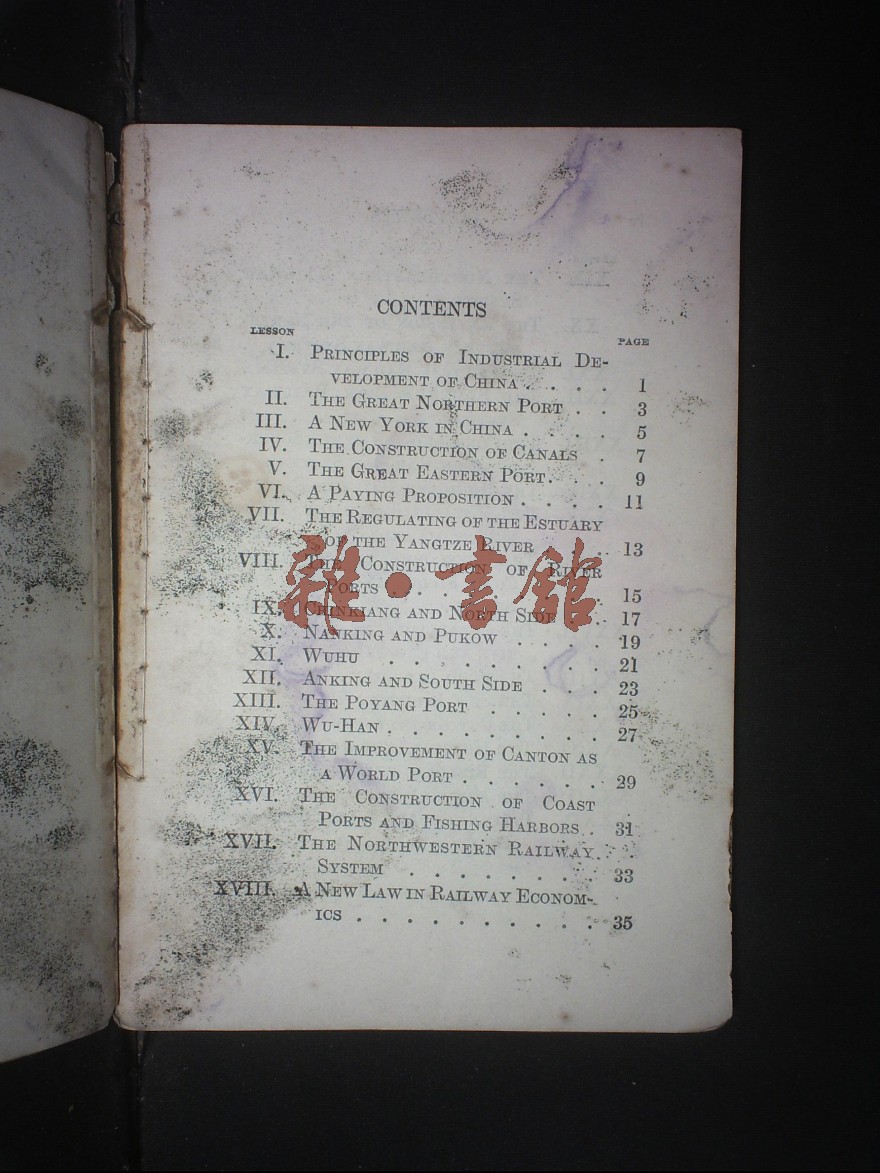 CONTENTS
LESSON
PAGE
I. PRINCIPLES OF INDUSTRIAL DE-
VELOPMENT OF CHINA . . . . 1
II. THE GREAT NORTHERN PORT . . 3
III. A NEW YORK IN CHINA . . . . 5
IV. THE CONSTRUCTION OF CANALS . 7
V. THE GREAT EASTERN PORT . . . 9
VI. A PAYING PROPOSITION . . . . 11
VII. THE REGULATING OF THE ESTUARY
OF THE YANGTZE RIVER . . 13
VIII. THE CONSTRUCTION OF RIVER
PORTS . . . . . . . . 15
IX. CHINKIANG AND NORTH SIDE . . 17
X. NANKING AND PUKOW . . . . 19
XI. WUHU . . . . . . . . 21
XII. ANKING AND SOUTH SIDE . . . 23
XIII. THE POYANG PORT . . . . . 25
XIV. WU-HAN . . . . . . . . . 27
XV. THE IMPROVEMENT OF CANTON AS
A WORLD PORT . . . . . . 29
XVI. THE CONSTRUCTION OF COAST
PORTS AND FISHING HARBORS . 31
XVII. THE NORTHWESTERN RAILWAY
SYSTEM . . . . . . . . 33
XVIII. A NEW LAW IN RAILWAY ECONOM-
ICS . . . . . . . . . . 35
雜·書館